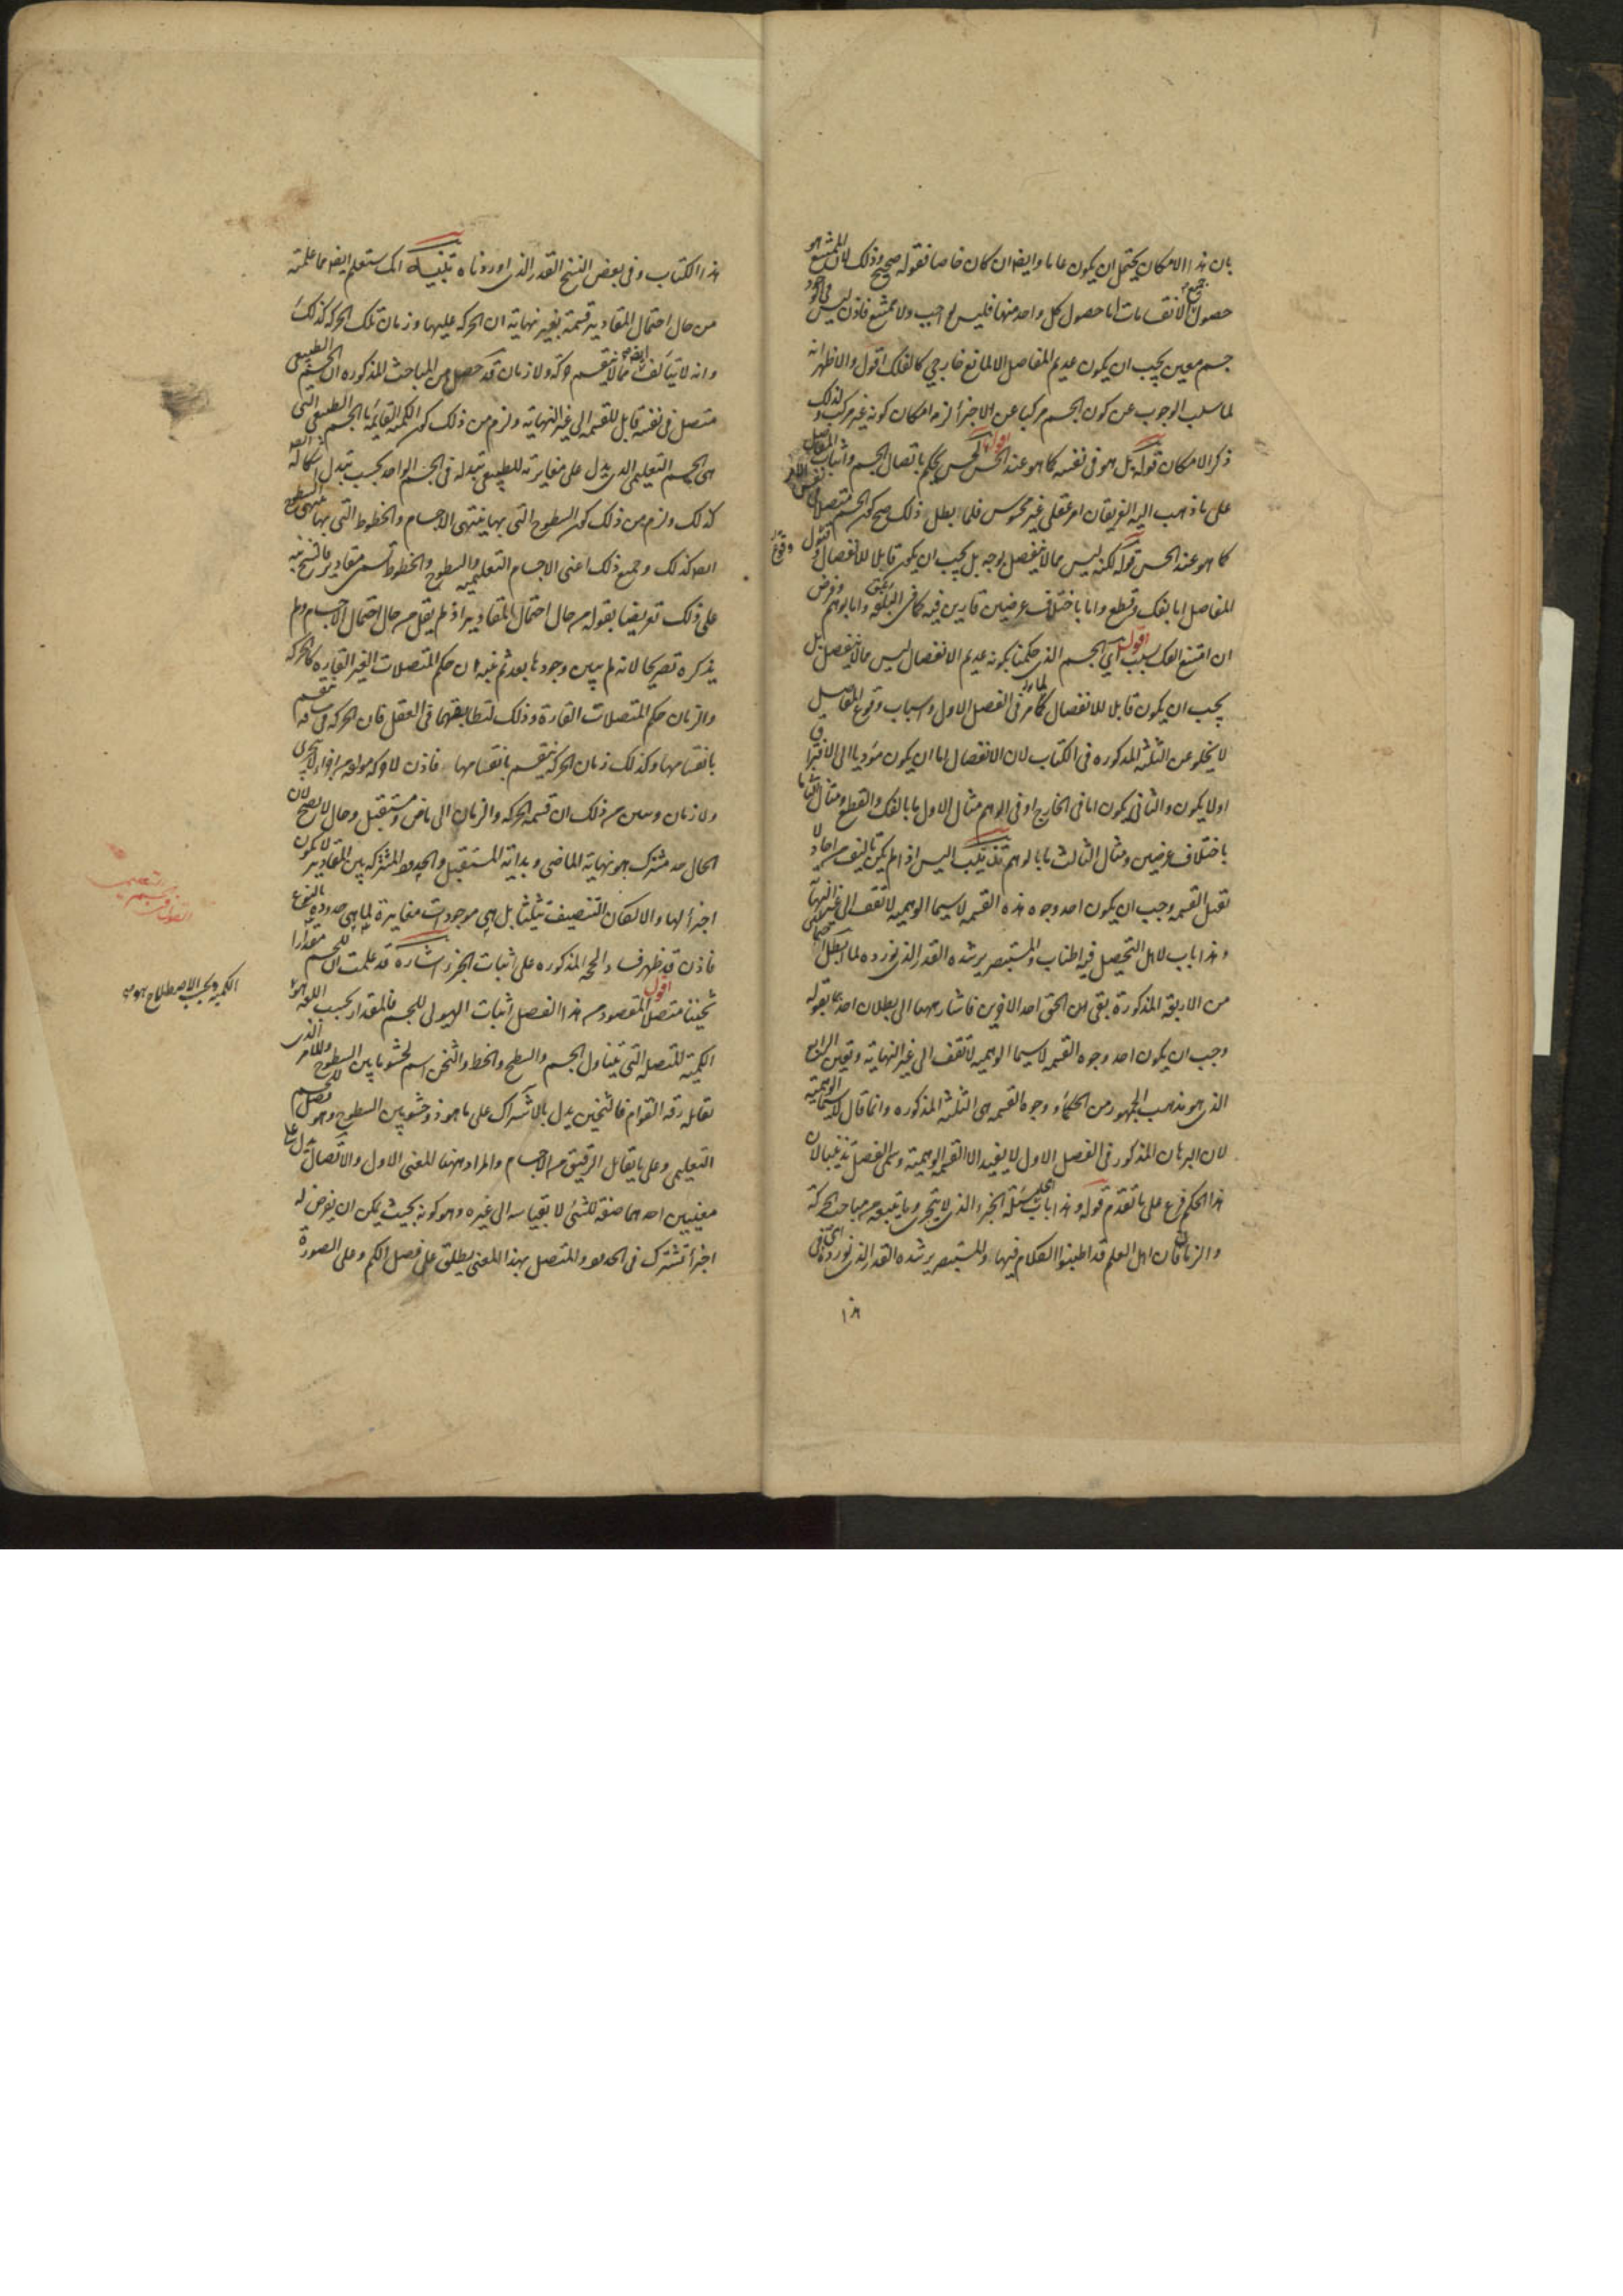 بان هذا الامكان يحتمل ان يكون عاما وايضا ان كان خاصا فقوله صحيح وذلك لان الممتنع هو
حصول جميع الانقسامات اما حصول كل واحد منها فليس بواجب ولا ممتنع فاذن ليس في الوجود
جسم معين يجب ان يكون عديم المفاصل الا لمانع خارجي كالفلك اقول والاظهر انه
لما سلب الوجوب عن كون الجسم مركبا عن الاجزأ لزم امكان كونه غير مركب ولذلك
ذكر الامكان قوله بل هو في نفسه كما هو عند الحس اقول الحس يحكم باتصال الجسم واثبات المفاصل
على ما ذهب اليه الفريقان امر عقلي غير محسوس فلما بطل ذلك صح كون الجسم متصلا في نفس الامر
كما هو عند الحس قوله لكنه ليس مما لا ينفصل بوجه بل يجب ان يكون قابلا للانفصال وقبول وقوع
المفاصل اما بفك وقطع واما باختلاف عرضين قارين فيه كما في البلقة واما بوهم وفرض
ان امتنع الفك لسبب اقول اي الجسم الذي حكمنا بكونه عديم الانفصال ليس مما لا ينفصل بل
يجب ان يكون قابلا للانفصال لما مر في الفصل الاول واسباب وقوع المفاصيل
لا يخلو عن الثلثة المذكورة في الكتاب لان الانفصال اما ان يكون مؤديا الى الافتراق
او لا يكون والثاني يكون اما في الخارج او في الوهم مثال الاول ما بالفك والقطع ومثال الثاني ما
باختلاف عرضين ومثال الثالث ما بالوهم تذنيب اليس اذا لم يكن تاليف من احاد لا
تقبل القسمة وجب ان يكون احد وجوه هذه القسمة لا سيما الوهمية لا تقف الى غير النهاية
وهذا باب لاهل التحصيل فيه اطناب والمستبصر يرشده القدر الذي نورده لما ابطل
من الاربعة المذكورة بقى ان الحق احد الاخرين فاشار ههنا الى بطلان احدهما بقوله
وجب ان يكون احد وجوه القسمة لا سيما الوهمية لا تقف الى غير النهاية وتعين الرابع
الذي هو مذهب الجمهور من الحكماء ووجوه القسمة هي الثلثة المذكورة وانما قال لا سيما الوهمية
لان البرهان المذكور في الفصل الاول لا يفيد الا القسمة الوهمية وسمى الفصل تذنيبا لان
هذا الحكم فرع على ما تقدم قوله وهذا باب اي مسئلة الجزء الذي لا يتجزى وما يتبعه من مباحث الحركة
والزمان فان اهل العلم قد اطنبوا الكلام فيها والمستبصر يرشده القدر الذي نورده في
هذا
هذا الكتاب وفي بعض النسخ القدر الذي اوردناه تنبيه انك ستعلم ايضا مما علمته
من حال احتمال المقادير قسمة بغير نهاية ان الحركة عليها وزمان تلك الحركة كذلك
وانه لا يتألف ايضا مما لا ينقسم حركة ولا زمان قد حصل من المباحث المذكورة ان الجسم الطبيعي
متصل في نفسه قابل للقسمة الى غير النهاية ولزم من ذلك كون الكمية القائمة بالجسم الطبيعي التي
هي الجسم التعليمي الذي يدل على مغايرته للطبيعي تبدله في الجسم الواحد بحسب تبدل اشكاله
كذلك ولزم من ذلك كون السطوح التي بها ينتهي الاجسام والخطوط التي بها ينتهي السطوح
ايضا كذلك وجميع ذلك اعني الاجسام التعليمية والسطوح والخطوط تسمى مقادير فالشيخ نبه
على ذلك تعريضا بقوله من حال احتمال المقادير اذ لم يقل من حال احتمال الاجسام ولم
يذكره تصريحا لانه لم يبين وجودها بعد ثم نبه ان حكم المتصلات الغير القارة كالحركة
والزمان حكم المتصلات القارة وذلك لتطابقهما في العقل فان الحركة في مسافة تنقسم
بانقسامها وكذلك زمان الحركة ينقسم بانقسامها فاذن لا حركة مؤلفة من اجزاء لا تتجزى
ولا زمان وتبين من ذلك ان قسمة الحركة والزمان الى ماض ومستقبل وحال لا يصح لان
الحال حد مشترك هو نهاية الماضي وبداية المستقبل والحدود المشتركة بين المقادير لا يكون
اجزأ لها والا لكان التنصيف تثليثا بل هي موجودات مغايرة لما هي حدوده بالنوع
فاذن قد ظهر فساد الحجة المذكورة على اثبات الجزء اشارة قد علمت ان للجسم مقدارا
ثخينا متصلا اقول المقصود من هذا الفصل اثبات الهيولى للجسم فالمقدار بحسب اللغة هو
الكمية المتصلة التي يتناول الجسم والسطح والخط والثخن اسم لحشو ما بين السطوح وللامر الذي
تقابله رقة القوام فالثخين يدل بالاشتراك على ما هو ذو حشو بين السطوح وهو فصل للجسم
التعليمي وعلى ما يقابل الرقيق من الاجسام والمراد ههنا المعنى الاول والاتصال يدل على
معنيين احدهما صفة للشئ لا بقياسه الى غيره وهو كونه بحيث يمكن ان يفرض له
اجزأ تشترك في الحدود والمتصل بهذا المعنى يطلق على فصل الكم وعلى الصورة
الكمية وبحسب الاصطلاح هو